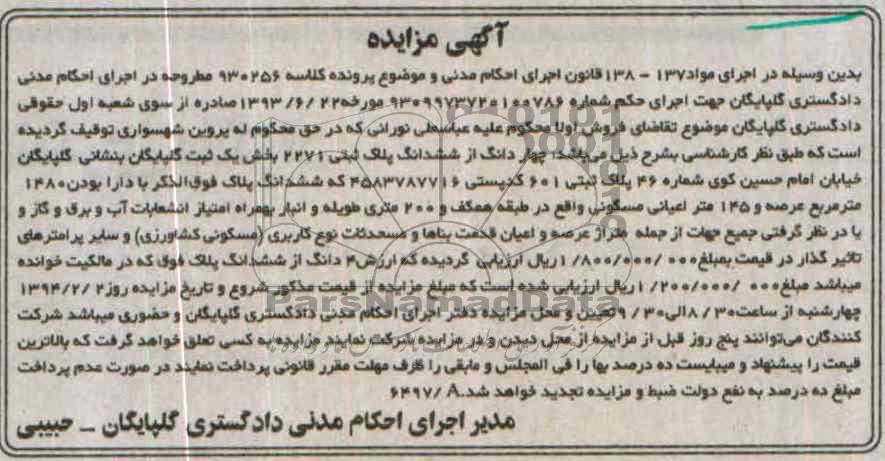 آگهی مزایده
بدین وسیله در اجرای مواد۱۳۷ - ۱۳۸قانون اجرای احکام مدنی و موضوع پرونده کلاسه ۹۳۰۲۵۶ مطروحه در اجرای احکام مدنی
دادگستری گلپایگان جهت اجرای حکم شماره ۹۳۰۹۹۷۳۷۲۰۱۰۰۷۸۶ مورخه۲۲ /۶/ ۱۳۹۳صادره از سوی شعبه اول حقوقی
دادگستری گلپایگان موضوع تقاضای فروش اولا محکوم علیه عباسعلی نورانی که در حق محکوم له پروین شهسواری توقیف گردیده
است که طبق نظر کارشناسی بشرح ذیل میباشد: چهار دانگ از ششدانگ پلاک ثبتی ۲۲۷۱ بخش یک ثبت گلپایگان بنشانی گلپایگان
خیابان امام حسین کوی شماره ۴۶ پلاک ثبتی ۶۰۱ کدپستی ۴۵۸۳۷۸۷۷۱۶ که ششدانگ پلاک فوق‌الذکر با دارا بودن۱۴۸۰
مترمربع عرصه و ۱۴۵ متر اعیانی مسکونی واقع در طبقه همکف و ۲۰۰ متری طویله و انبار بهمراه امتیاز انشعابات آب و برق و گاز و
با در نظر گرفتی جمیع جهات از جمله متراژ عرصه و اعیان قدمت بناها و مستحدثات نوع کاربری (مسکونی کشاورزی) و سایر پرامترهای
تاثیر گذار در قیمت بمبلغ۰۰۰ /۰۰۰/ ۱/۸۰۰ریال ارزیابی گردیده که ارزش۴ دانگ از ششدانگ پلاک فوق که در مالکیت خوانده
میباشد مبلغ۰۰۰ /۰۰۰/ ۱/۲۰۰ریال ارزیابی شده است که مبلغ مزایده از قیمت مذکور شروع و تاریخ مزایده روز۲ /۲/ ۱۳۹۴
چهارشنبه از ساعت۳۰ / ۸الی۳۰ / ۹تعیین و محل مزایده دفتر اجرای احکام مدنی دادگستری گلپایگان و حضوری میباشد شرکت
کنندگان می‌توانند پنج روز قبل از مزایده از محل دیدن و در مزایده شرکت نمایند مزایده به کسی تعلق خواهد گرفت که بالاترین
قیمت را پیشنهاد و میبایست ده درصد بها را فی المجلس و مابقی را ظرف مهلت مقرر قانونی پرداخت نمایند در صورت عدم پرداخت
مبلغ ده درصد به نفع دولت ضبط و مزایده تجدید خواهد شد.۶۴۹۷/A
مدیر اجرای احکام مدنی دادگستری گلپایگان – حبیبی
ParsNamadData